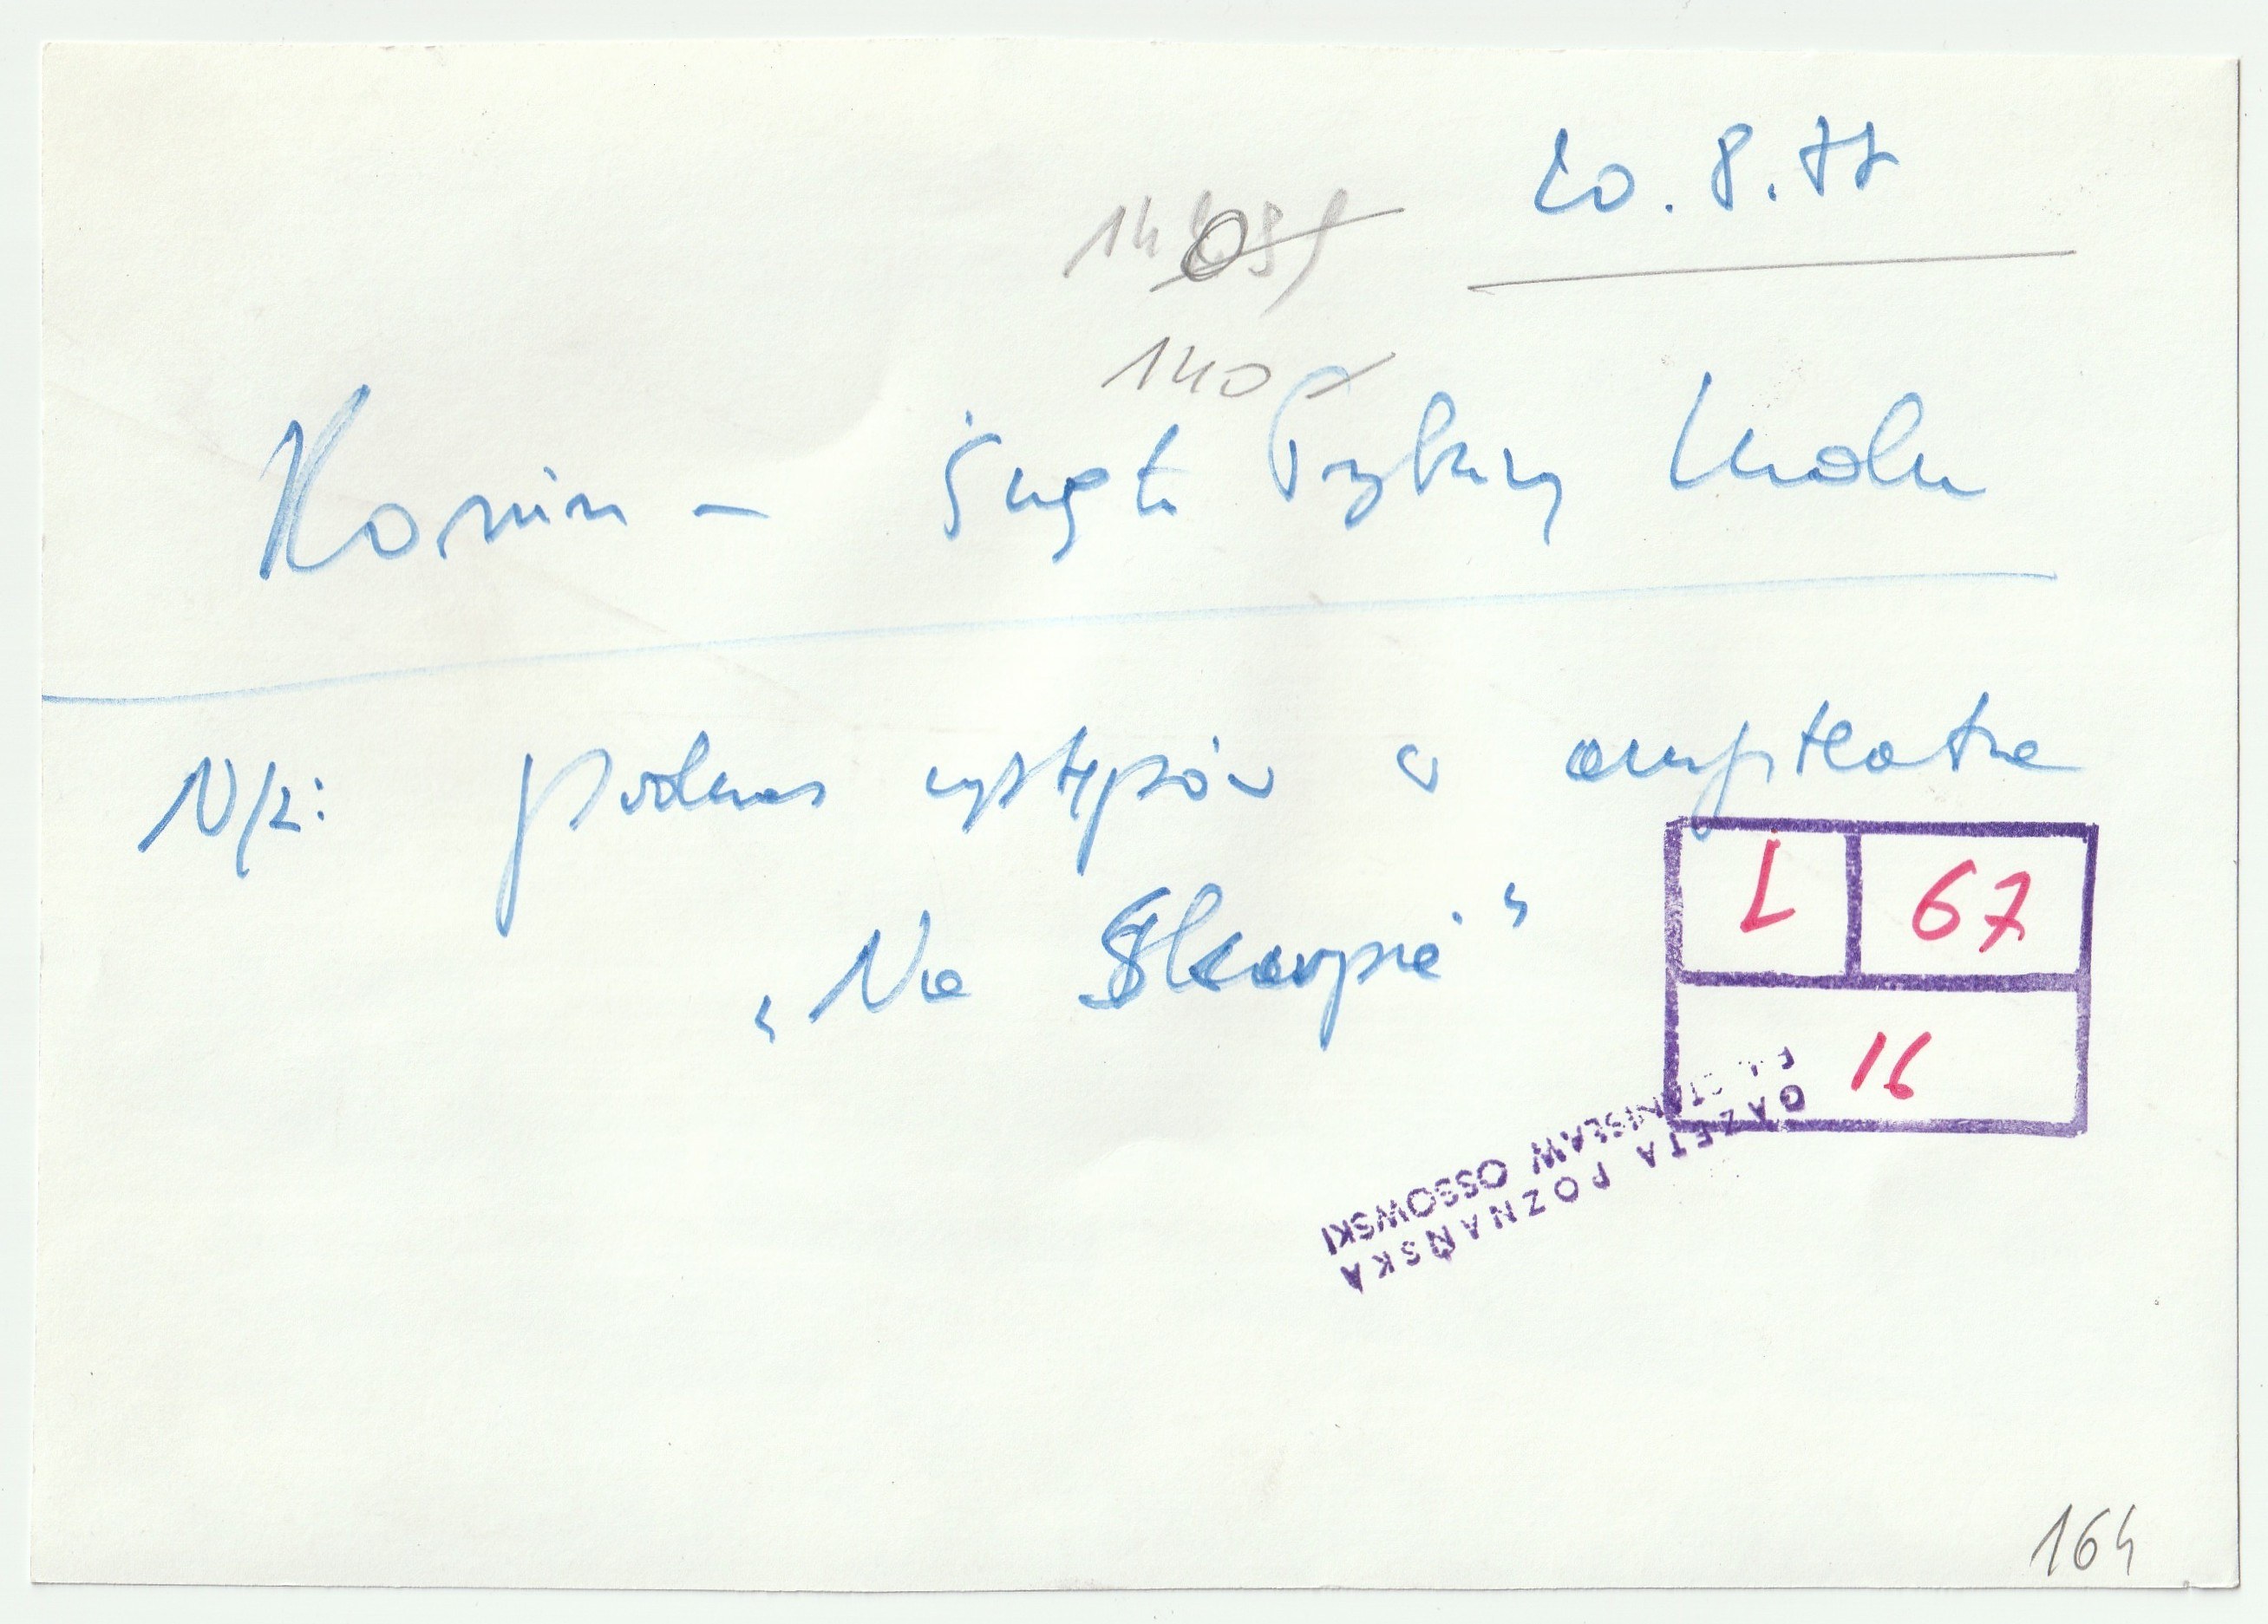 20.8.77
140
Konin – Święto Trybuny Ludu
N/z: podczas występów w amfiteatrze
„Na Skarpie"
L 67
16
GAZETA POZNAŃSKA
STANISŁAW OSSOWSKI
164